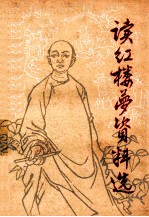 读红楼梦资料选